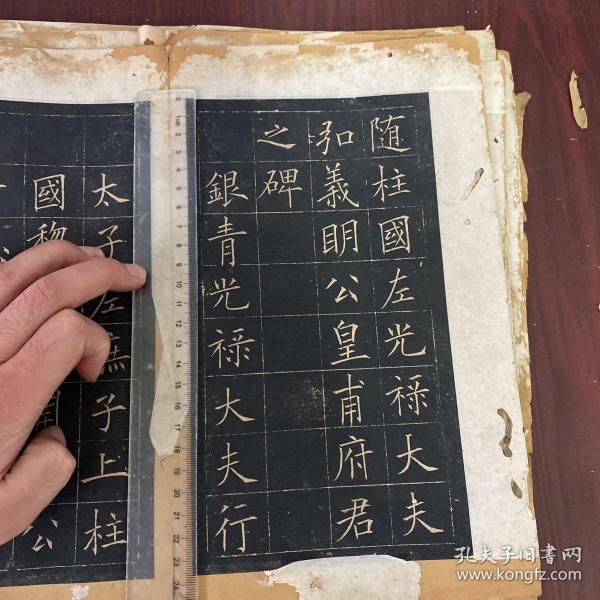 随柱國左光祿大夫
弘義明公皇甫府君
之碑
銀青光祿大夫行
太子左庶子上柱
國
公
孔夫子旧書网
www.kongfz.com